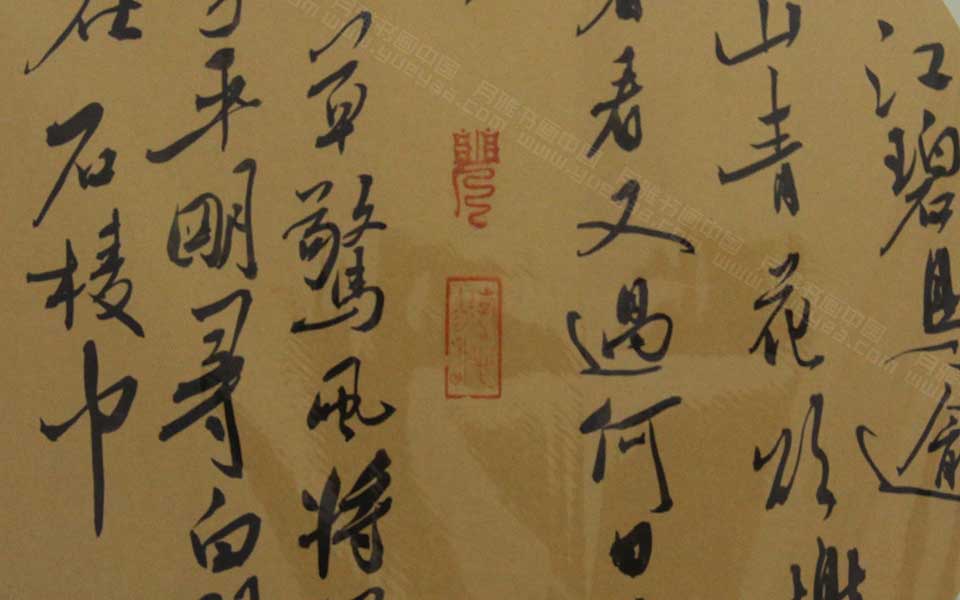 江碧鳥逾
山青花欲燃
看又過何日
草驚風將
平明尋白
在石棱中
月雅书画中国
www.yueyaa.com